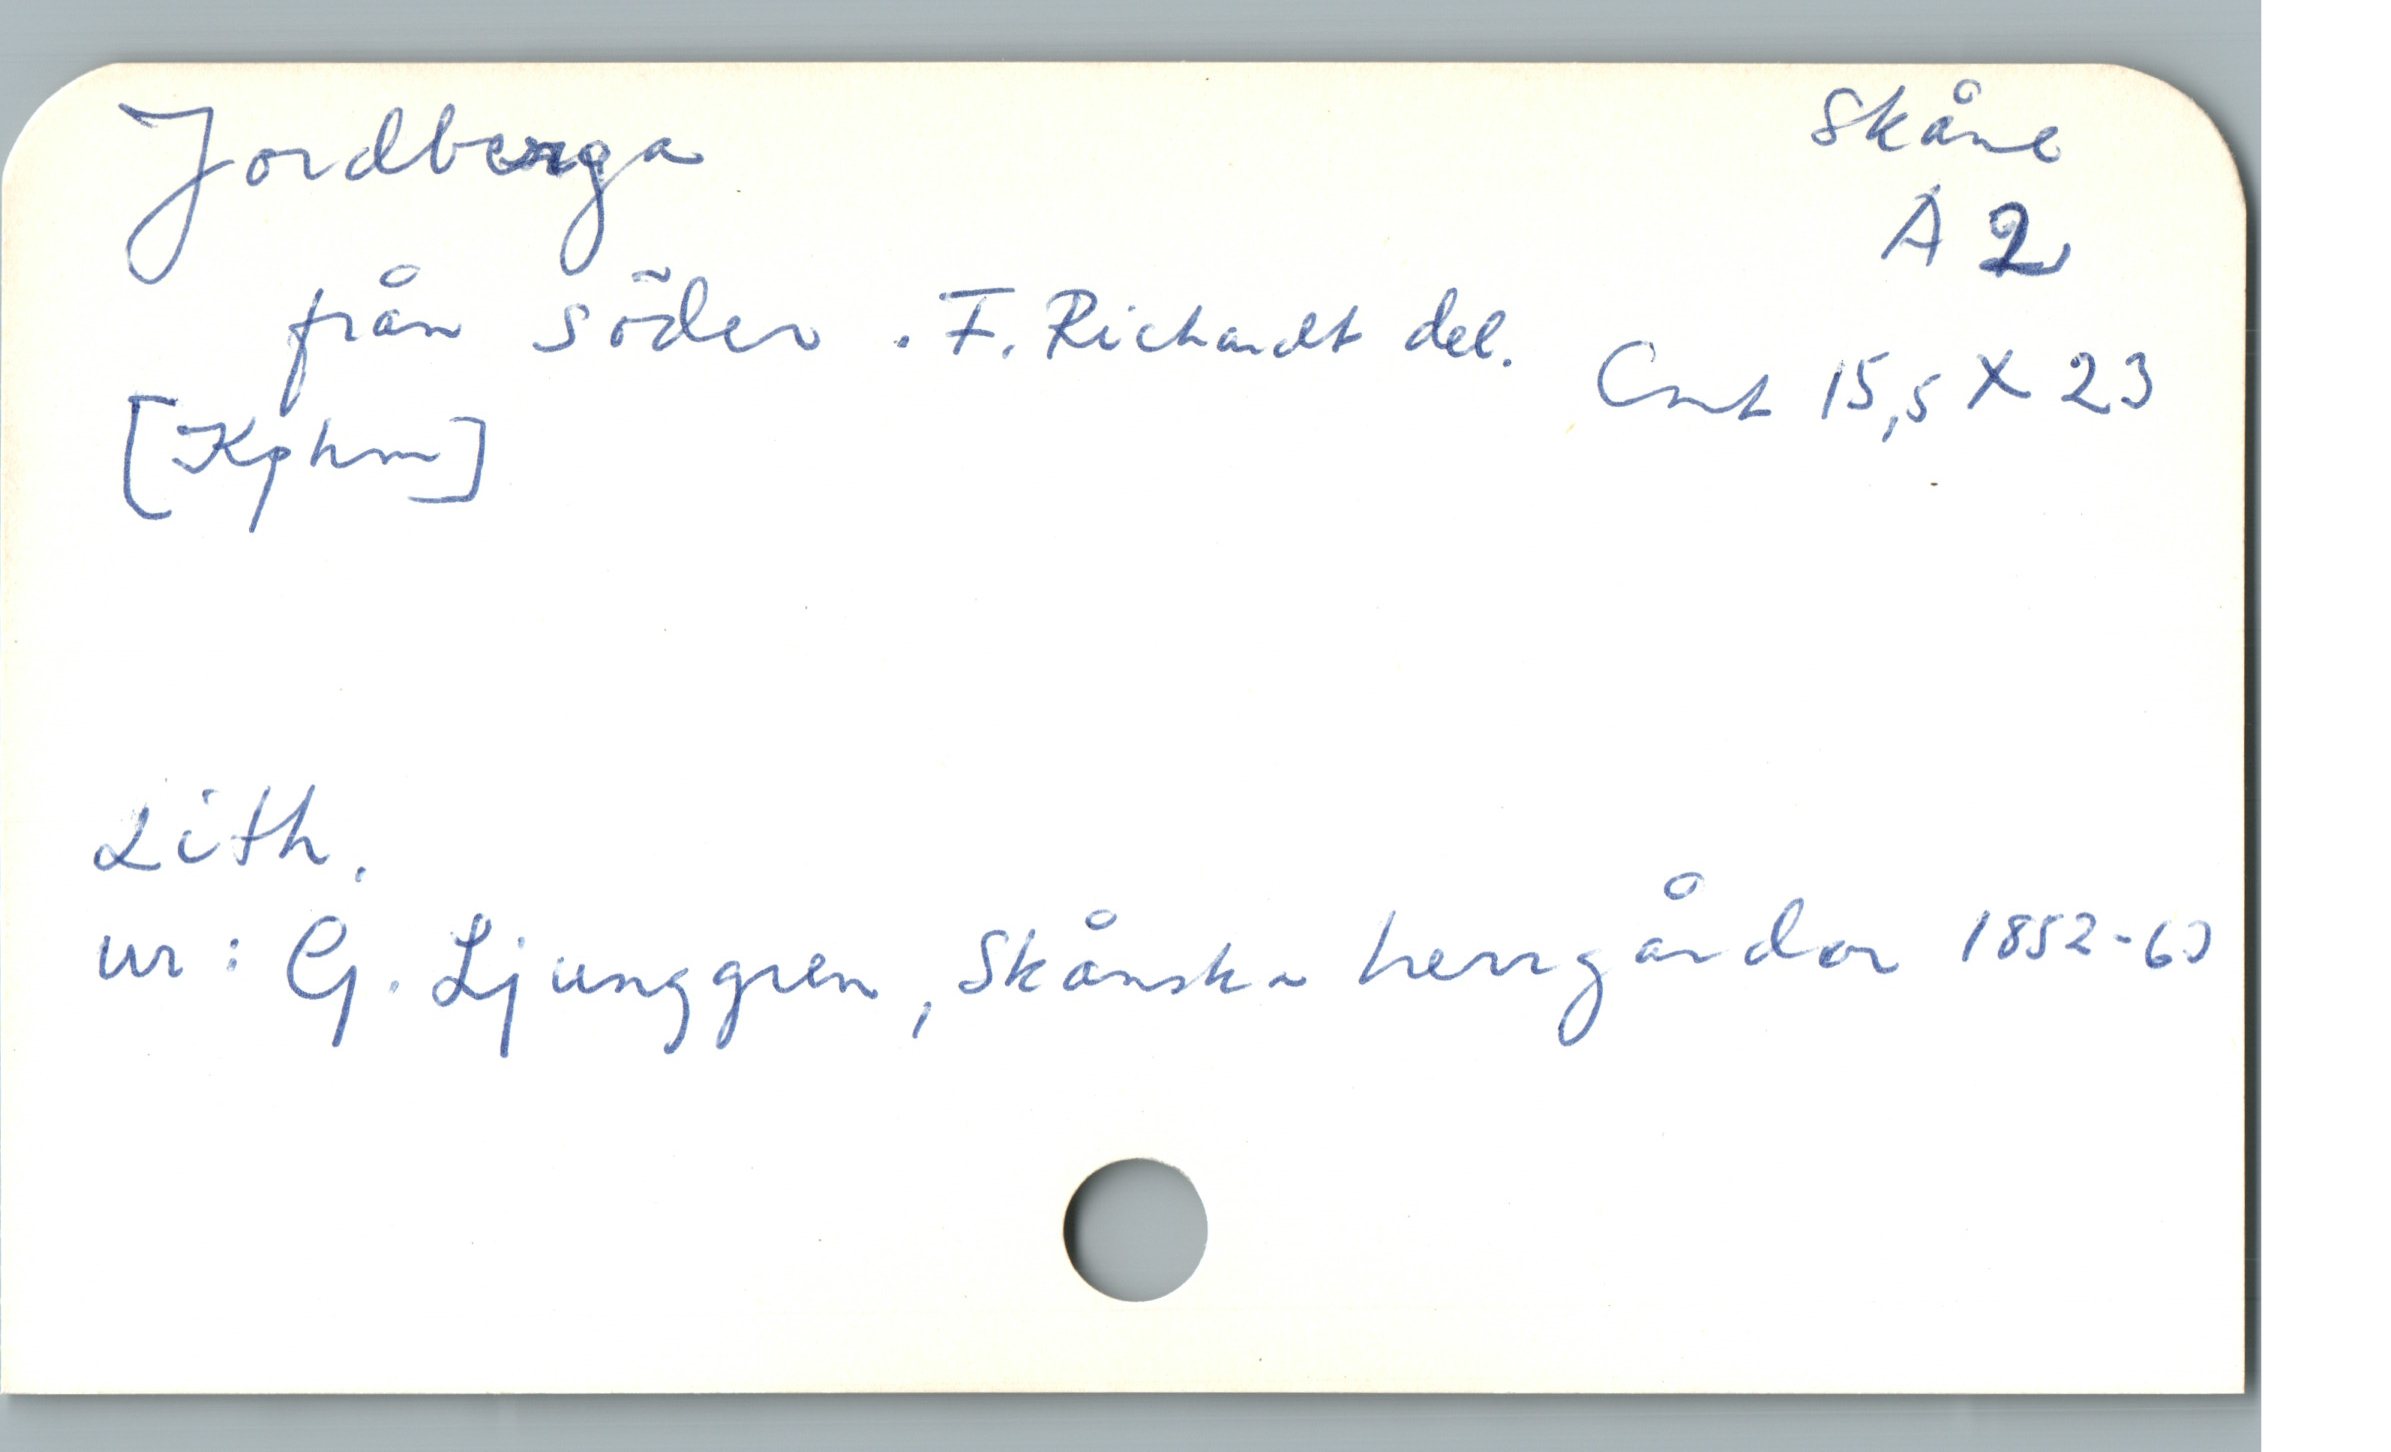 Jordberga
Skåne
A 2
från söder. F. Richardt del.
Cmt 15,5 X 23
[Kphm]
Lith.
ur: G. Ljunggren, Skånska herrgårdar 1852-63